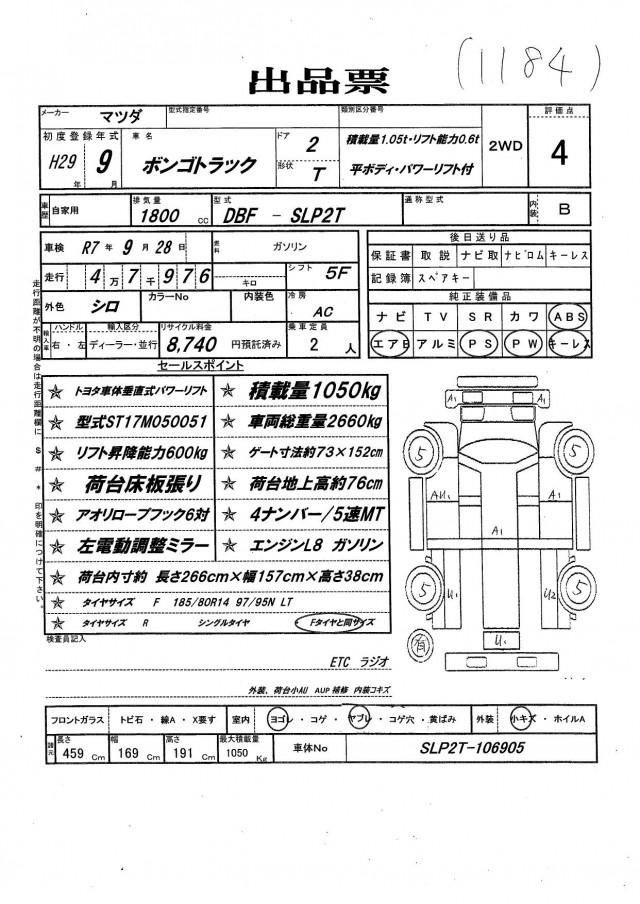 (1184)
出品票
メーカー マツダ 型式指定番号 類別区分番号 評価点
初度登録年式 H29年 9月 車名 ボンゴトラック ドア 2 形状 T 積載量1.05t・リフト能力0.6t 平ボディ・パワーリフト付 2WD 4
車歴 自家用 排気量 1800 CC 型式 DBF - SLP2T 通称型式 内装 B
車検 R7年 9月 28日 燃料 ガソリン 後日送り品
走行 4万7千976 キロ シフト 5F 保証書 取説 ナビ取 ナビロム キーレス
記録簿 スペアキー
外色 シロ カラーNo 内装色 冷房 AC 純正装備品
ナビ TV SR カワ ABS
輸入車 ハンドル 右・左 輸入区分 ディーラー・並行 リサイクル料金 8,740 円預託済み 乗車定員 2人 エアB アルミ PS PW キーレス
走行距離が不明の場合は走行距離欄に $ # * 印を明確につけて下さい。
セールスポイント
☆ トヨタ車体垂直式パワーリフト ☆ 積載量1050kg
☆ 型式ST17M050051 ☆ 車両総重量2660kg
☆ リフト昇降能力600kg ☆ ゲート寸法約73×152cm
☆ 荷台床板張り ☆ 荷台地上高約76cm
☆ アオリロープフック6対 ☆ 4ナンバー/5速MT
☆ 左電動調整ミラー ☆ エンジンL8 ガソリン
☆ 荷台内寸約 長さ266cm×幅157cm×高さ38cm
☆ タイヤサイズ F 185/80R14 97/95N LT
☆ タイヤサイズ R シングルタイヤ Fタイヤと同サイズ
A1 A1
5 5
AU1 A1
A1
5 5
U1 U2
有 U1
検査員記入
ETC ラジオ
外装、荷台小AU AUP補修 内装コキズ
フロントガラス トビ石・線A・X要す 室内 ヨゴレ・コゲ・ヤブレ・コゲ穴・黄ばみ 外装 小キズ・ホイルA
諸元 長さ 459 Cm 幅 169 Cm 高さ 191 Cm 最大積載量 1050 Kg 車体No SLP2T-106905